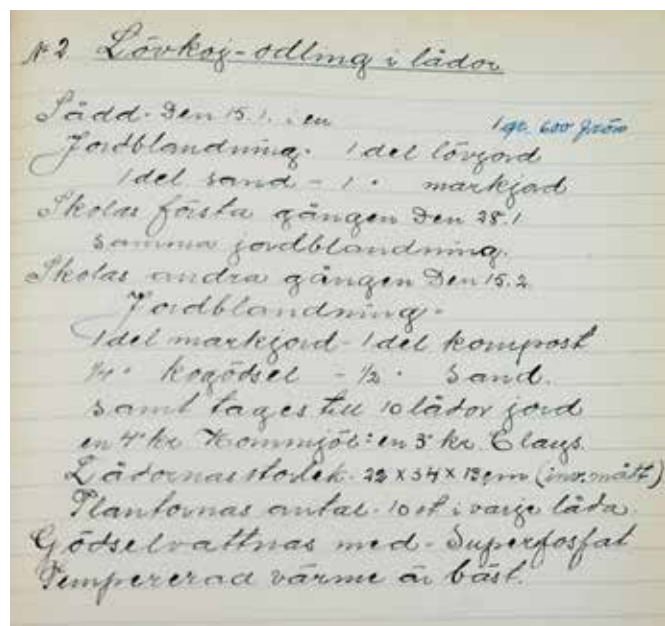 № 2 Lövkoj-odling i lådor
Sådd. Den 15.1. i en
1 gr. 600 frön
Jordblandning. 1 del lövjord
1 del sand - 1 " markjord
Skolas första gången Den 28.1
samma jordblandning.
Skolas andra gången Den 15.2.
Jordblandning.
1 del markjord - 1 del kompost
1/4 " kogödsel - 1/2 " sand.
samt tages till 10 lådor jord
en 4" kr. Hornmjöl: en 3" kr. Clays.
Lådornas storlek. 22 x 34 x 13 cm (inv. mått)
Plantornas antal. 10 st i varje låda.
Gödselvattnas med - Superfosfat
Tempererad värme är bäst.